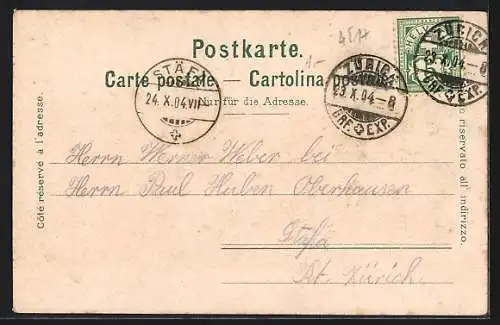 Postkarte.
Carte postale. — Cartolina postale.
Nur für die Adresse.
Côté réservé à l'adresse.
riservato all' indirizzo.
STÄFA
24.X.04.VII
ZÜRICH
23.X.04-8
BRF. EXP.
ZÜRICH
23.X.04-8
BRF. EXP.
HELV
Herrn Werner Weber bei
Herrn Paul Huben Oberhausen
Stäfa
Kt. Zürich.